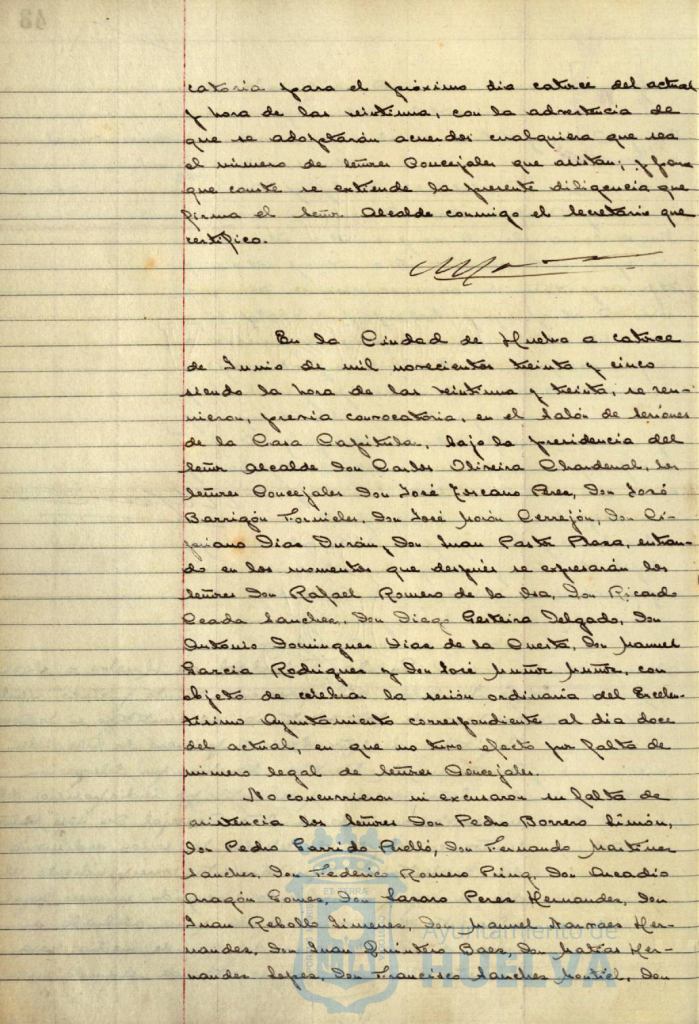 catoria para el próximo dia catorce del actual
y hora de las veintiuna, con la advertencia de
que se adoptarán acuerdos cualquiera que sea
el número de señores Concejales que asistan; y para
que conste se extiende la presente diligencia que
firma el señor Alcalde conmigo el Secretario que
certifico.
En la Ciudad de Huelva a catorce
de Junio de mil novecientos treinta y cinco
siendo la hora de las veintiuna y treinta, se reu-
nieron, previa convocatoria, en el Salón de sesiones
de la Casa Capitular, bajo la presidencia del
señor Alcalde Don Carlos Oliveira Chardenal, los
señores Concejales Don José Toscano Perez, Don José
Barrigón Fornieles, Don José Morón Cerrejón, Don Ci-
priano Dias Durán y Don Juan Pastor Plaza, entran-
do en los momentos que después se expresarán los
señores Don Rafael Romero de la Osa, Don Ricardo
Ceada Sanchez, Don Diego Gesteira Delgado, Don
Antonio Domingues Dias de la Cuesta, Don Manuel
Garcia Rodrigues y Don José Muñoz Muñoz, con
objeto de celebrar la sesión ordinaria del Excelen-
tísimo Ayuntamiento correspondiente al dia doce
del actual, en que no tuvo efecto por falta de
número legal de señores Concejales.
No concurrieron ni excusaron su falta de
asistencia los señores Don Pedro Borrero Limón,
Don Pedro Garrido Perelló, Don Fernando Martínez
Sanches, Don Federico Romero Piug, Don Arcadio
Aragón Gomes, Don Lazaro Perez Hernandes, Don
Juan Rebollo Jimenes, Don Manuel Narvaes Her-
nandes, Don Juan Quintero Baez, Don Matías Her-
nandes Lopes, Don Francisco Sanches Montiel, Don
Ayuntamiento de
HUELVA